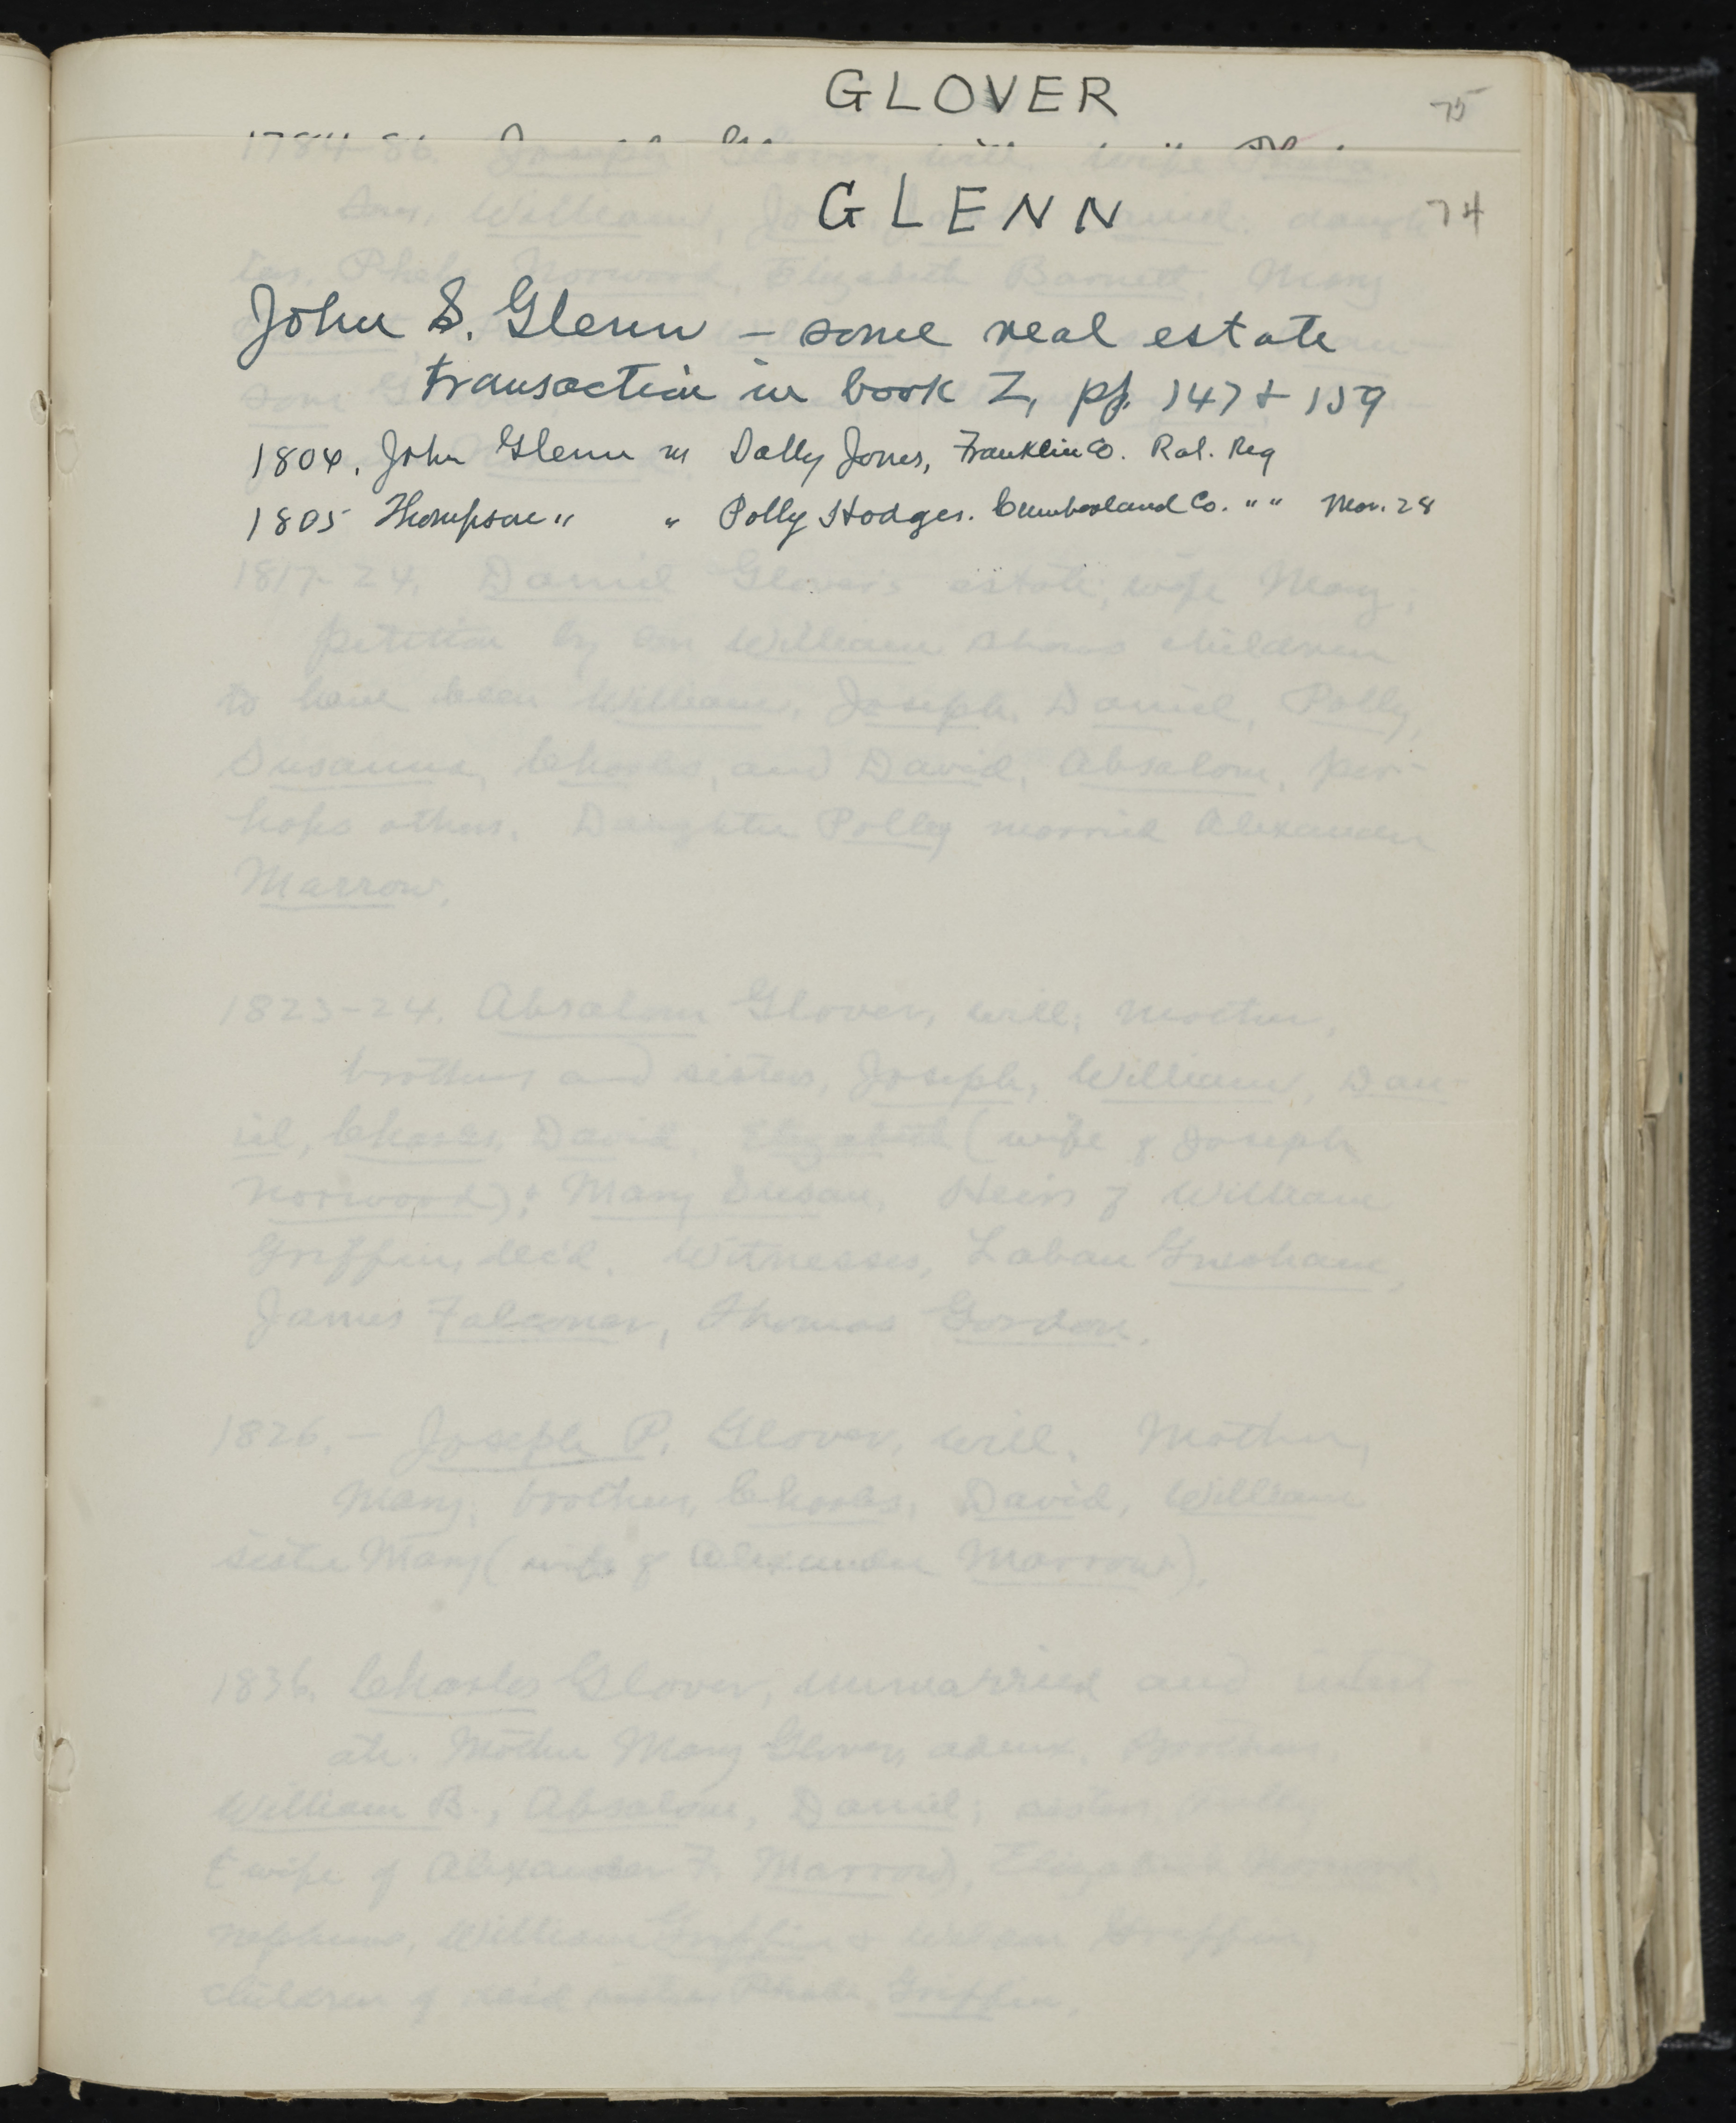 GLOVER 75
GLENN 74
John S. Glenn - some real estate
transaction in book Z, pp. 147 & 159
1804. John Glenn m Sally Jones, Franklin Co. Ral. Reg
1805 Thompson " " Polly Hodges. Cumberland Co. " " Mar. 28
1817-24. Daniel Glover's estate; wife Mary;
petition by son William shows children
to have been William, Joseph, Daniel, Polly,
Susanna, Charles, and David, Absalom, per-
haps others. Daughter Polly married Alexander
Marrow.
1823-24. Absalom Glover, will; mother,
brothers and sisters, Joseph, William, Dan-
iel, Charles, David, Elizabeth (wife of Joseph
Norwood); Mary Susan. Heirs of William
Griffin, dec'd. Witnesses, Laban Gresham,
James Falconer, Thomas Gordon.
1826. - Joseph P. Glover, will. Mother,
Mary; brothers, Charles, David, William
sister Mary (wife of Alexander Marrow).
1836. Charles Glover, unmarried and intest-
ate. Mother Mary Glover, admx. Brothers,
William B., Absalom, Daniel; sisters Polly
(wife of Alexander F. Marrow), Elizabeth Norwood,
nephews, William Griffin & Griffin,
children of sister Griffin.